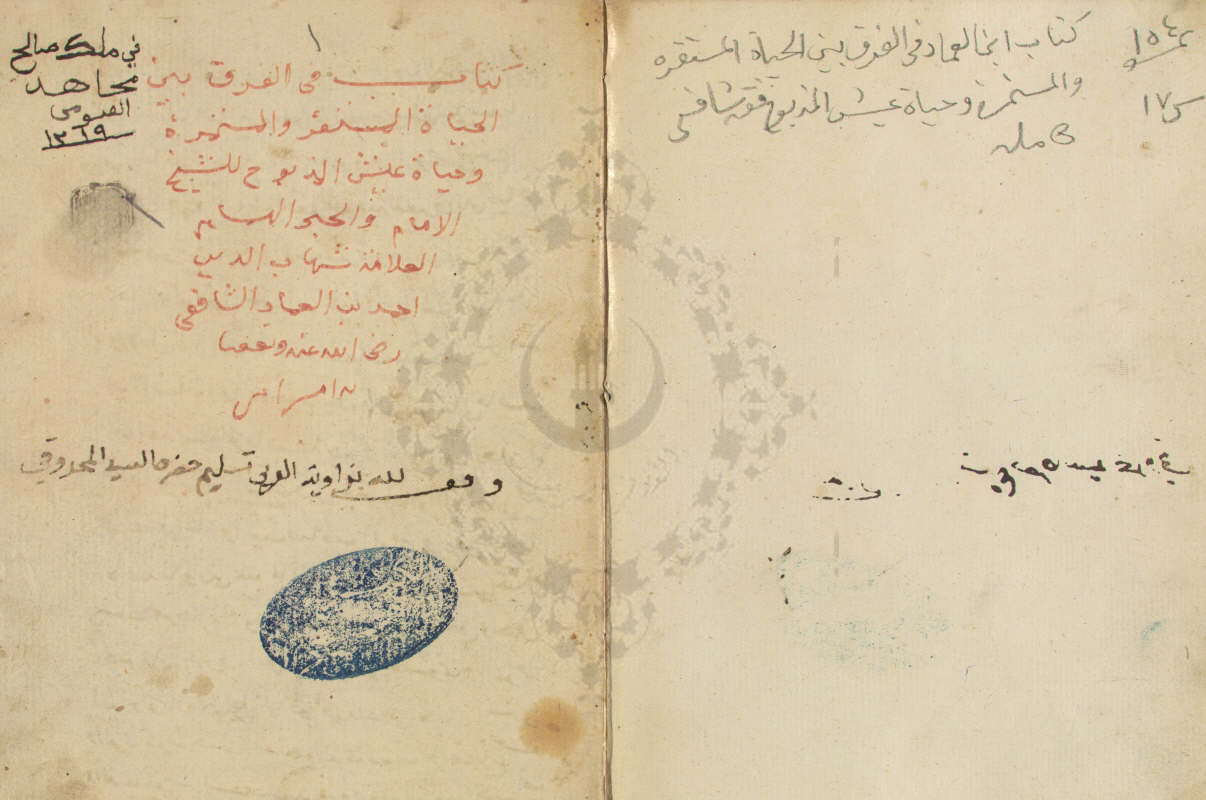 كتاب ابن العماد في الفرق بين الحياة المستقره
والمستمرة وحياة عيش المذبوح فقه شافعي
كامله
١٥٤
١٧
١
كتاب في الفرق بين
الحياة المستقر والمستمرة
وحياة عيش المذبوح للشيخ
الامام والحبر الهمام
العلامة شهاب الدين
احمد بن العماد الشافعي
رضي الله عنه ونفعنا
به امين
في ملك صالح
مجاهد
الفيومي
١٣٦٩
وقف لله بزاوية العربي تسليم حضرة السيد المحروقي